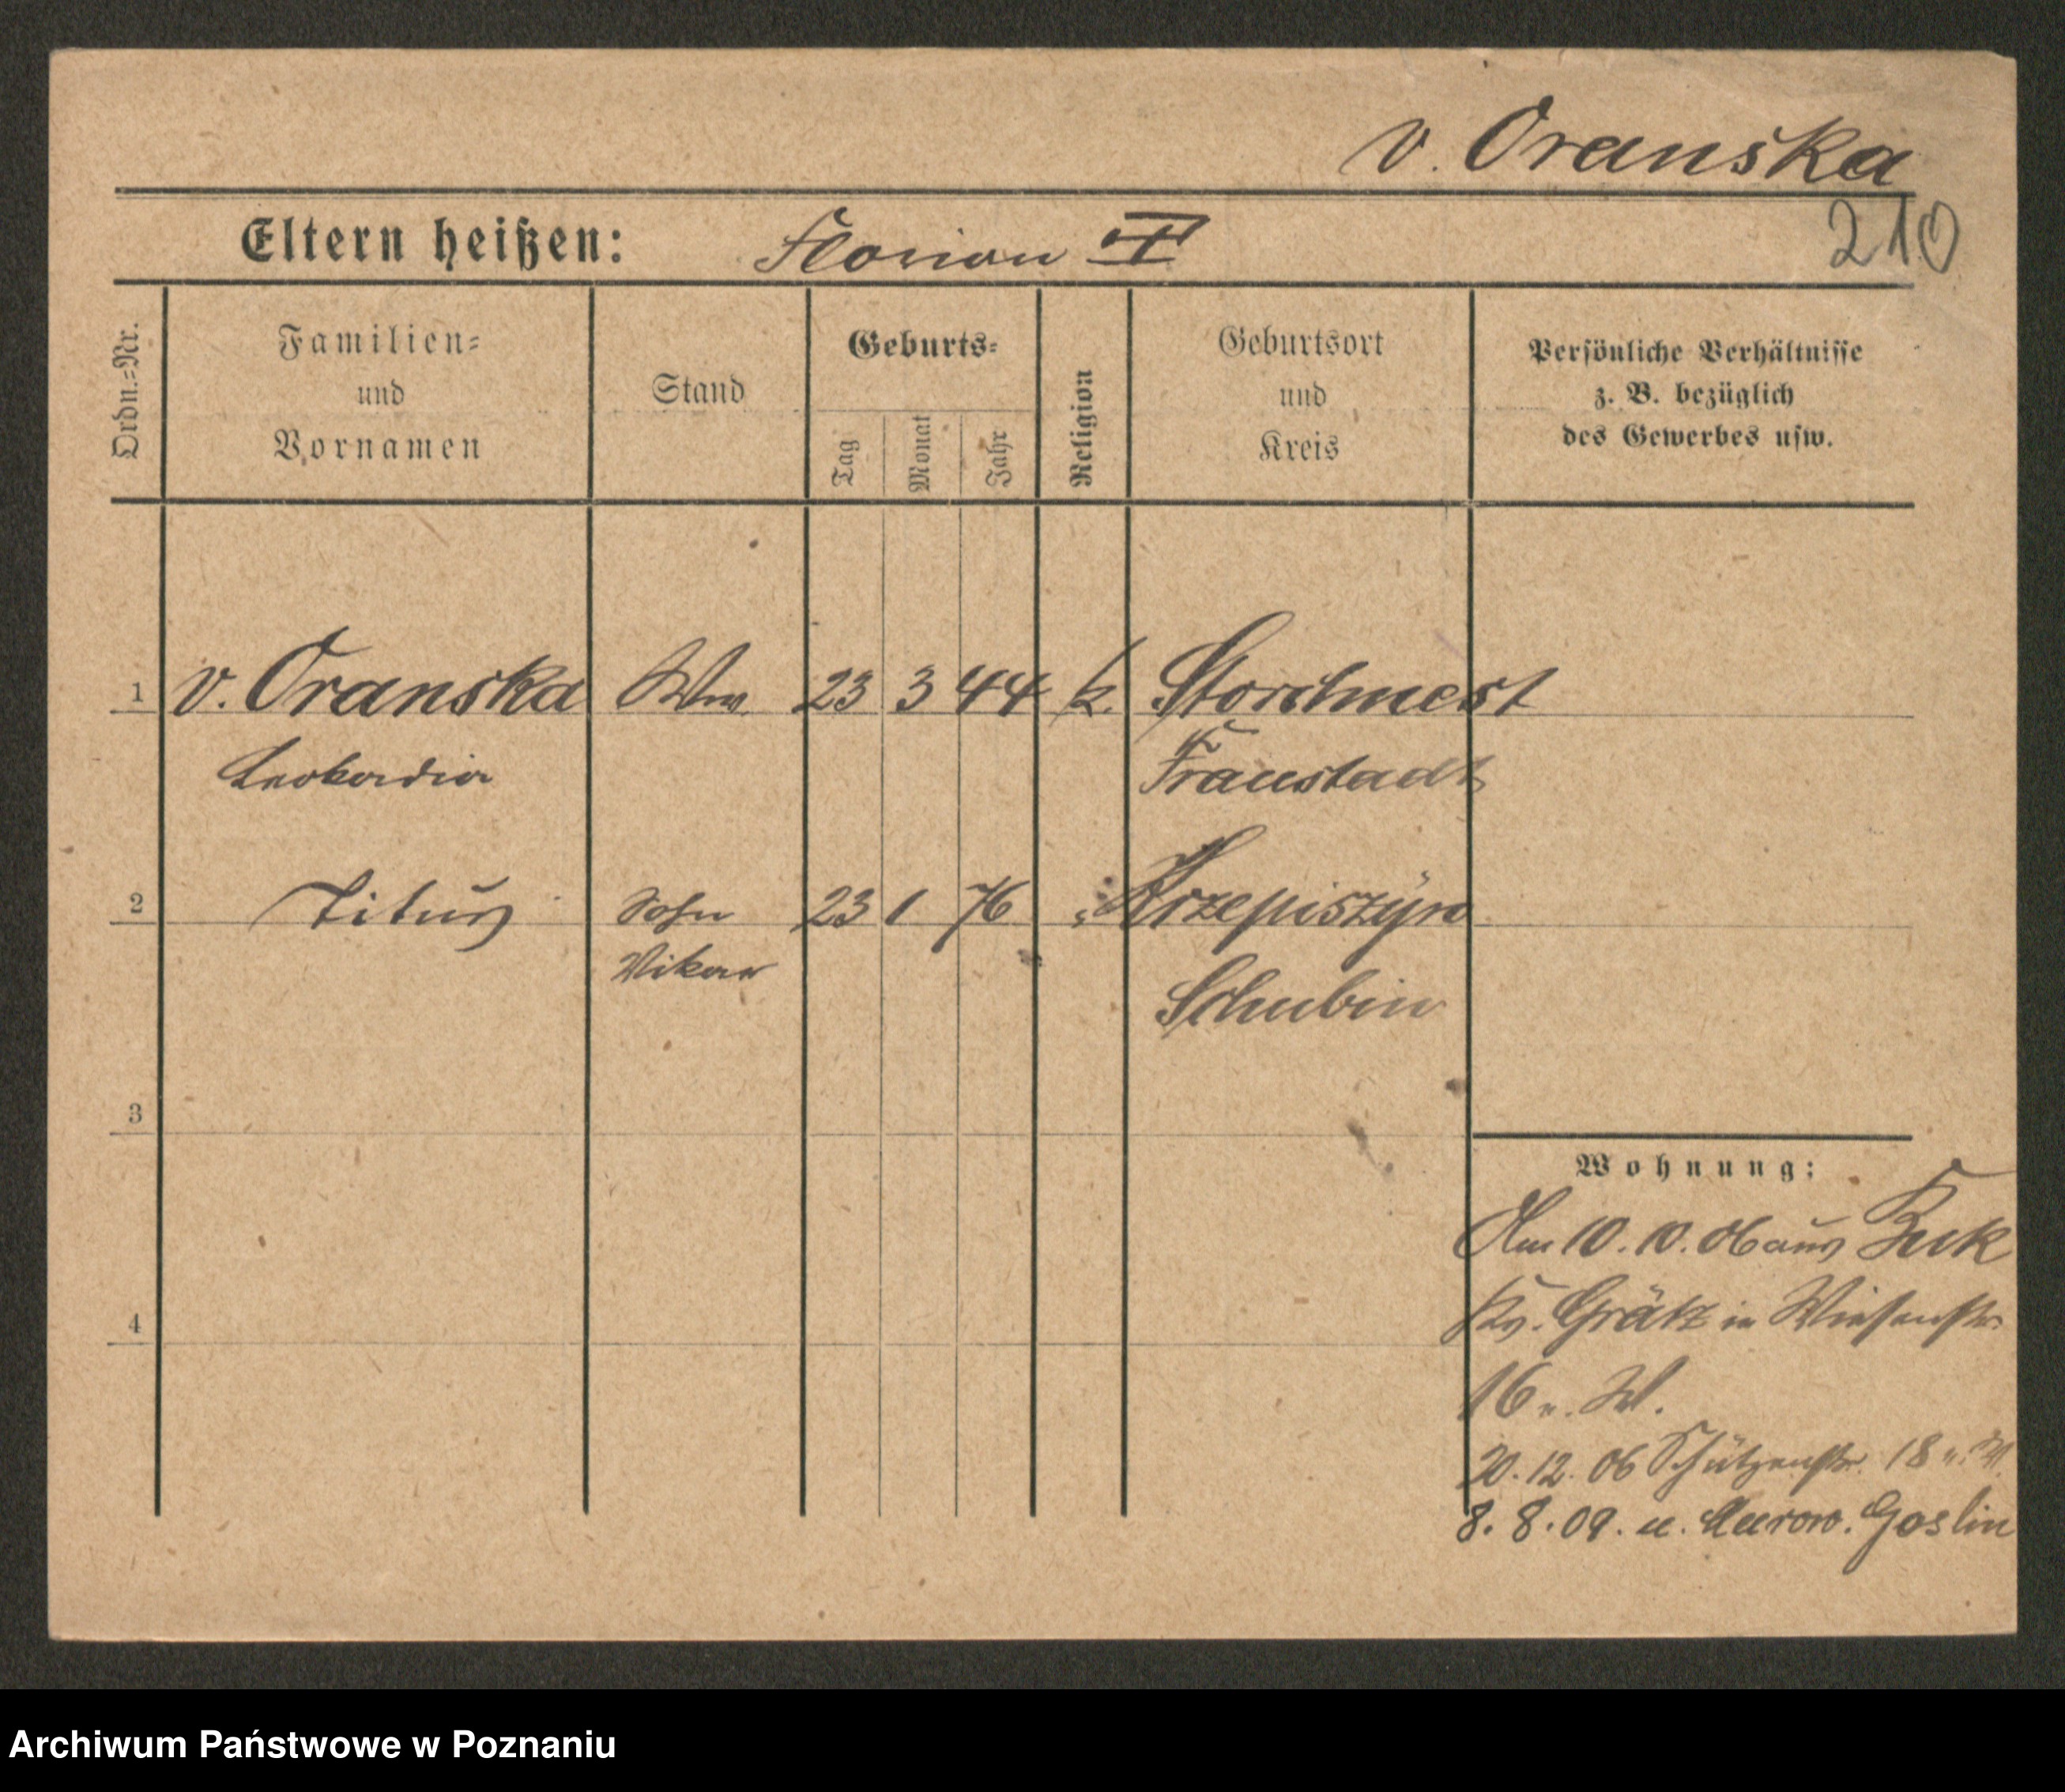 v. Oranska
Eltern heißen: Florian II
210
Ordn.=Nr.
Familien=
und
Vornamen
Stand
Geburts=
Tag
Monat
Jahr
Religion
Geburtsort
und
Kreis
Persönliche Verhältnisse
z. B. bezüglich
des Gewerbes usw.
1 v. Oranska Ww. 23 3 44 k. Storchnest
Leokadia Fraustadt
2 Titus Sohn 23 1 76 " Krzepiszyn
Vikar Schubin
3
Wohnung:
Am 10. 10. 06 aus Buk
Kr. Grätz in Wiesenstr.
4
16 b. W.
20. 12. 06 Schützenstr. 18
8. 8. 09. n. Murow. Goslin
Archiwum Państwowe w Poznaniu